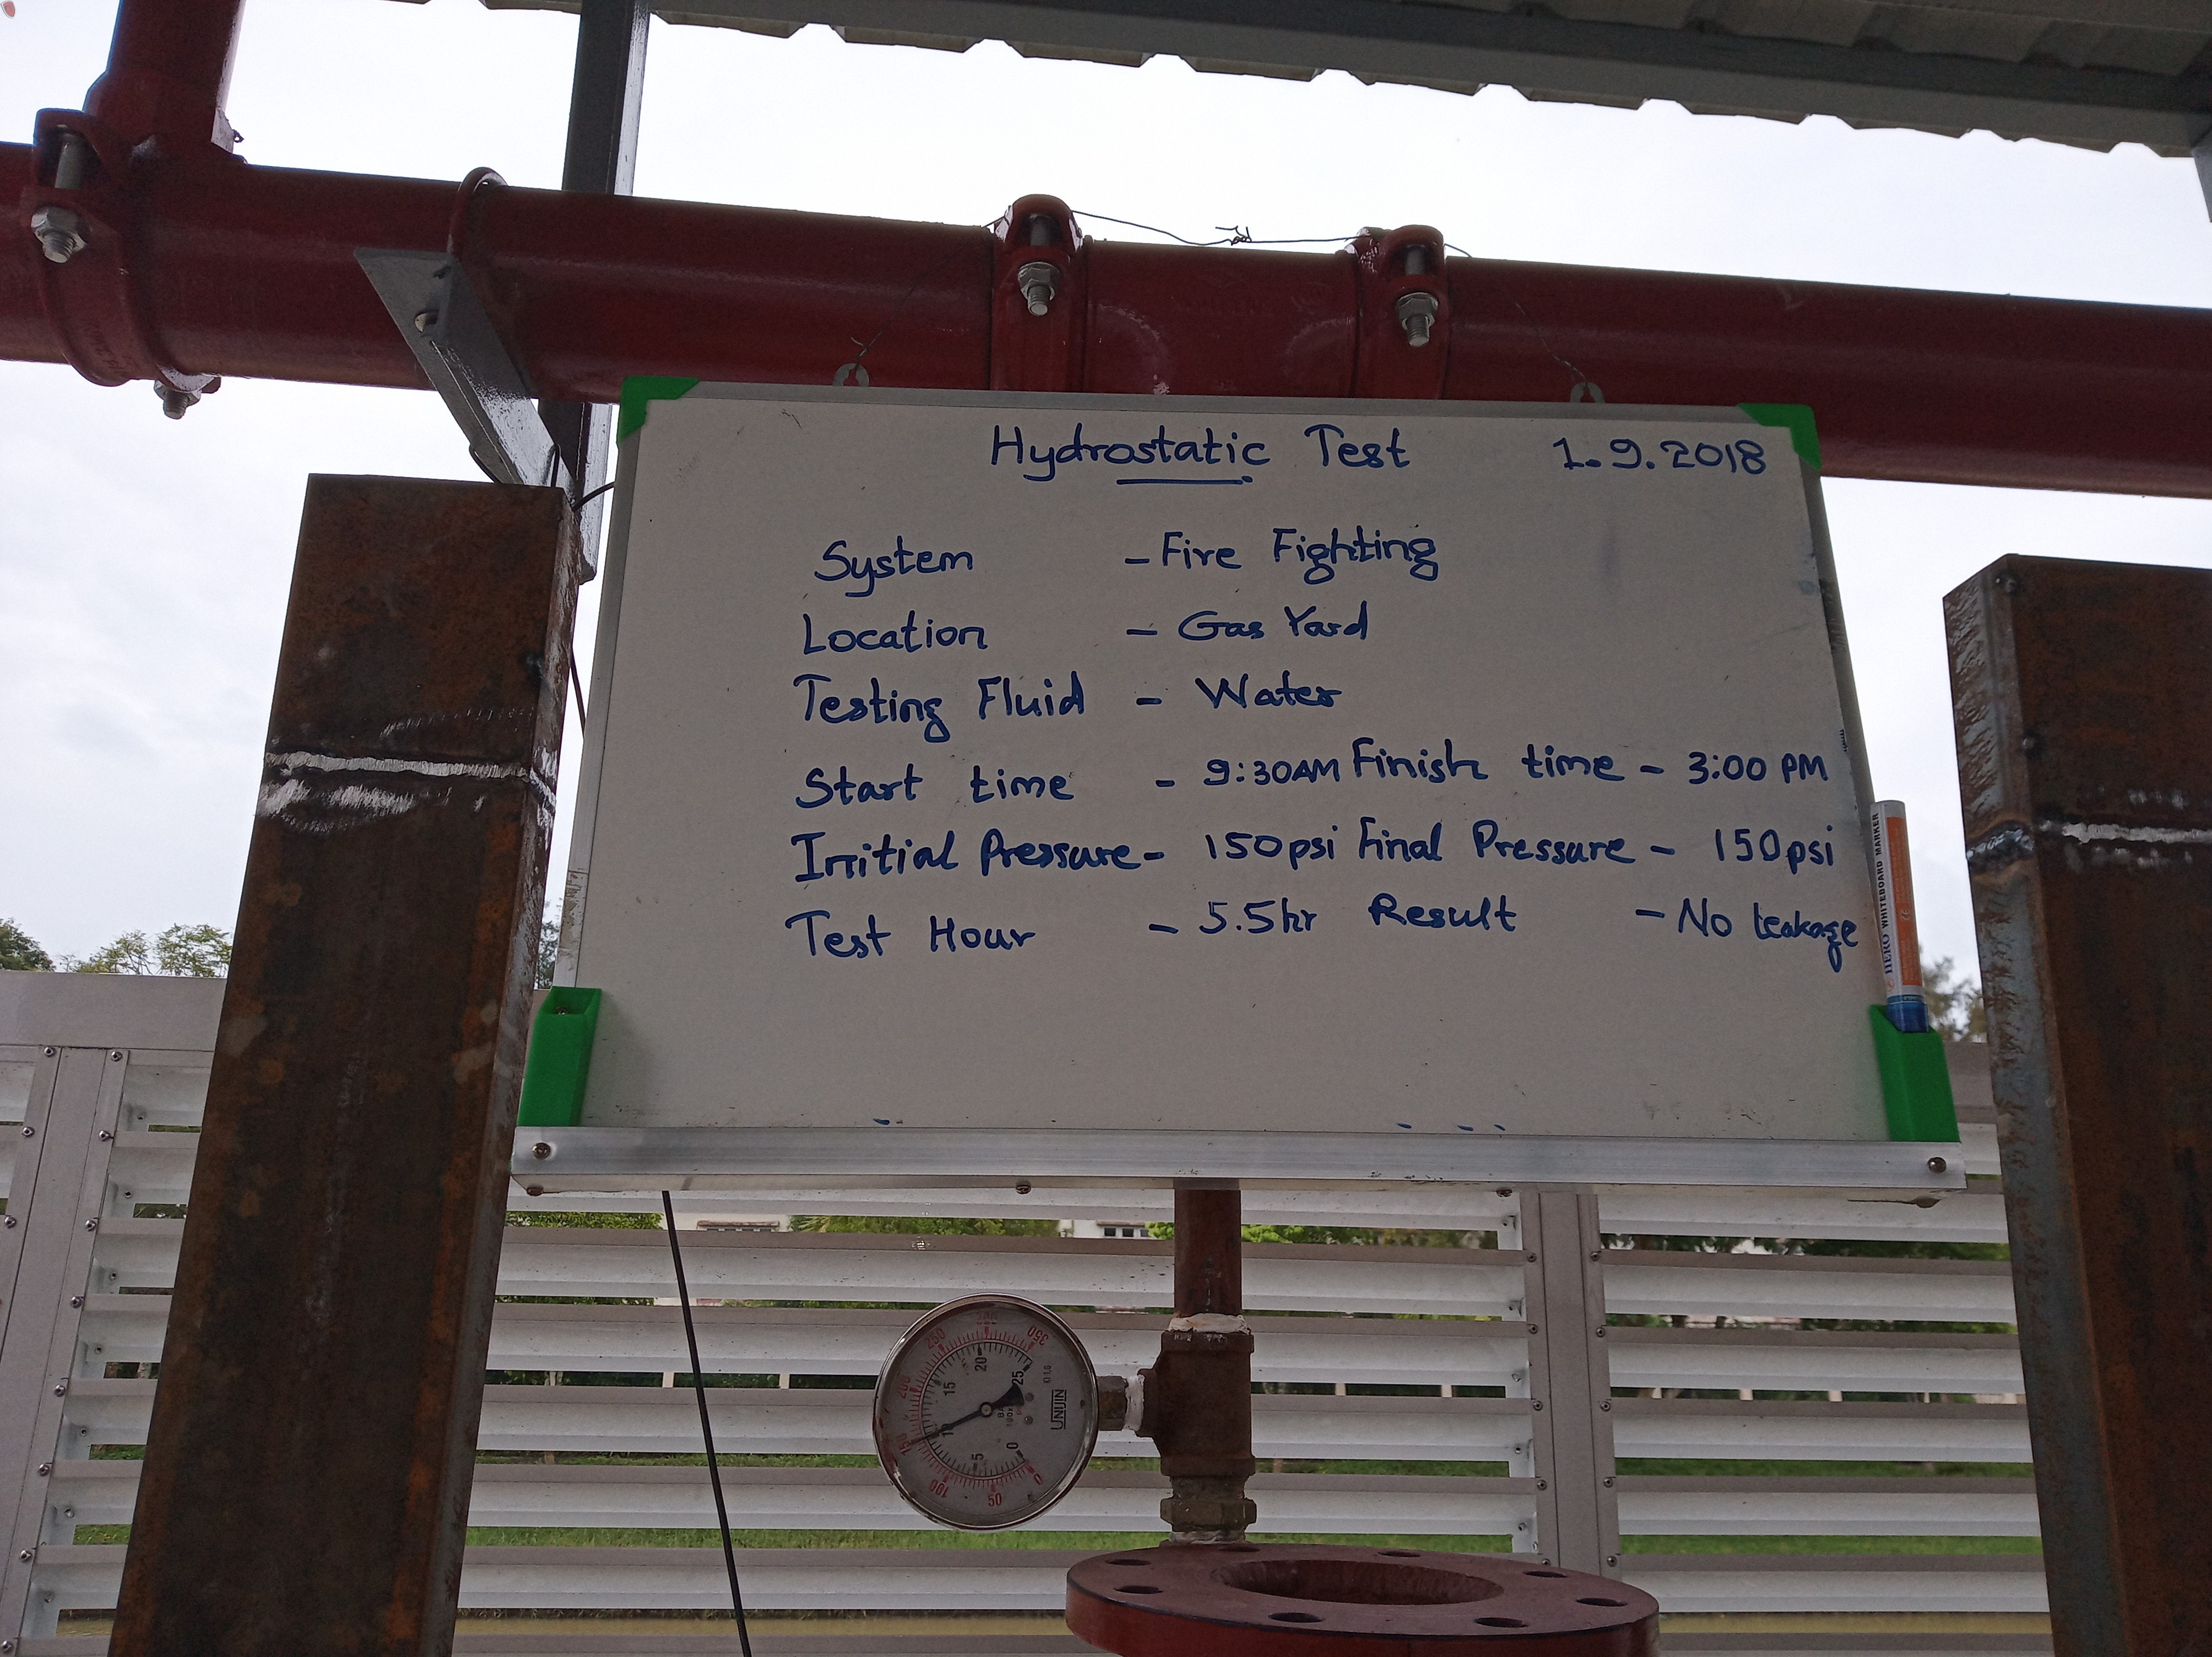 Hydrostatic Test 1.9.2018
System - Fire Fighting
Location - Gas Yard
Testing Fluid - Water
Start time - 9:30AM Finish time - 3:00 PM
Initial Pressure - 150psi Final Pressure - 150psi
Test Hour - 5.5hr Result - No Leakage
HERO WHITEBOARD MARKER
0 50 100 150 200 250 300 350
0 5 10 15 20 25
UNIJIN